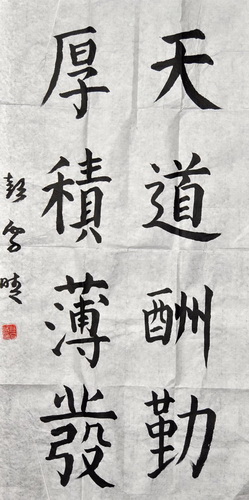 天道酬勤
厚積薄發
彭雪晴